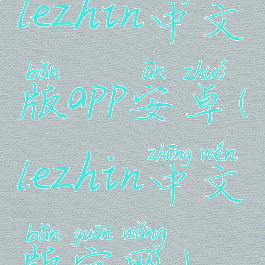 lezhin中文
bǎn ān zhuó
版app安卓(
zhōng wén
lezhin中文
bǎn guān wǎng
版官网)